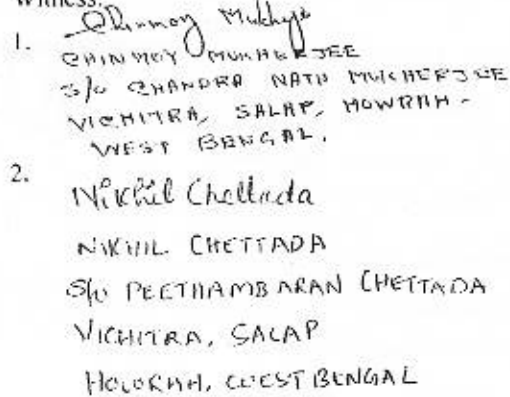 Witness:
1. Chinmoy Mukherjee
CHINMOY MUKHERJEE
S/o CHANDRA NATH MUKHERJEE
VICHITRA, SALAP, HOWRAH -
WEST BENGAL.
2. Nikhil Chettada
NIKHIL CHETTADA
S/o PEETHAMBARAN CHETTADA
VICHITRA, SALAP
HOWRAH, WEST BENGAL